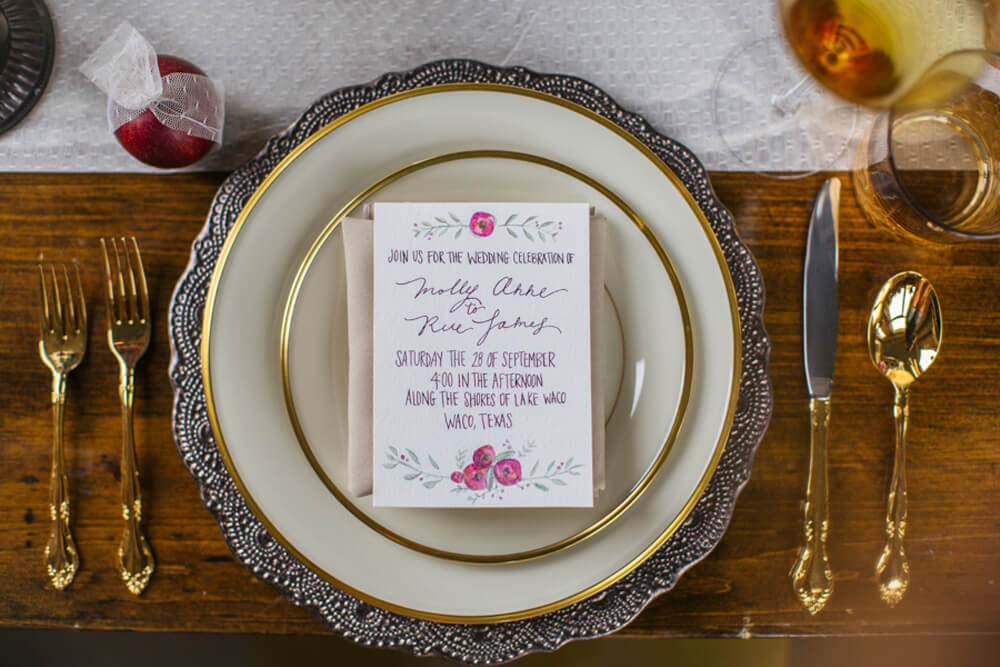 JOIN US FOR THE WEDDING CELEBRATION OF
Molly Anne
to
Rue James
SATURDAY THE 28 OF SEPTEMBER
4:00 IN THE AFTERNOON
ALONG THE SHORES OF LAKE WACO
WACO, TEXAS